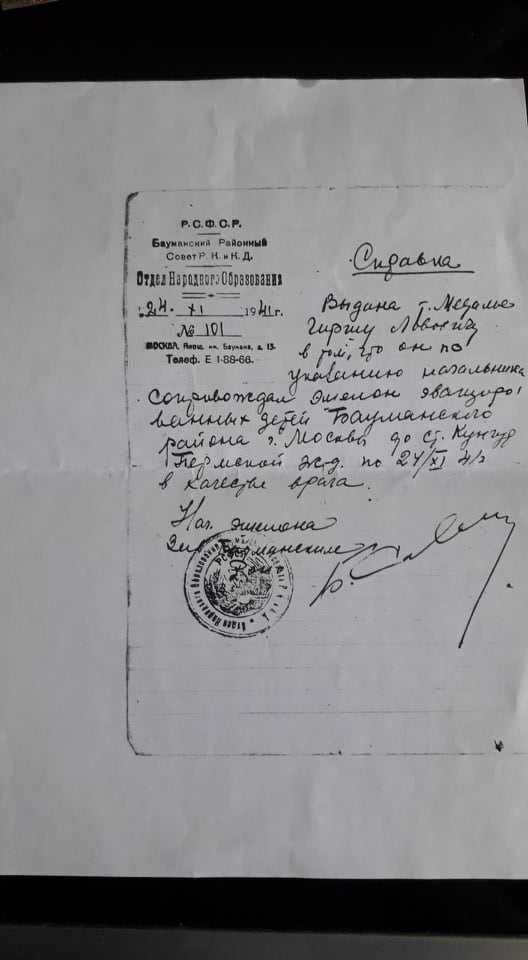 Р.С.Ф.С.Р.
Бауманский Районный
Совет Р. К. и К. Д.
Отдел Народного Образования
24. XI 1941 г.
№ 101
МОСКВА, им. Баумана, д. 13.
Телеф. Е 1-88-66.
Справка
Выдана т. Медалье
Гиршу Львовичу
в том, что он по
указанию начальника
сопровождал эшелон эвакуиро
ванных детей Бауманского
района г. Москвы до ст. Кунгур
Пермской ж.д. по 24/XI 41 г
в качестве врача.
Нач. эшелона
Бауманским